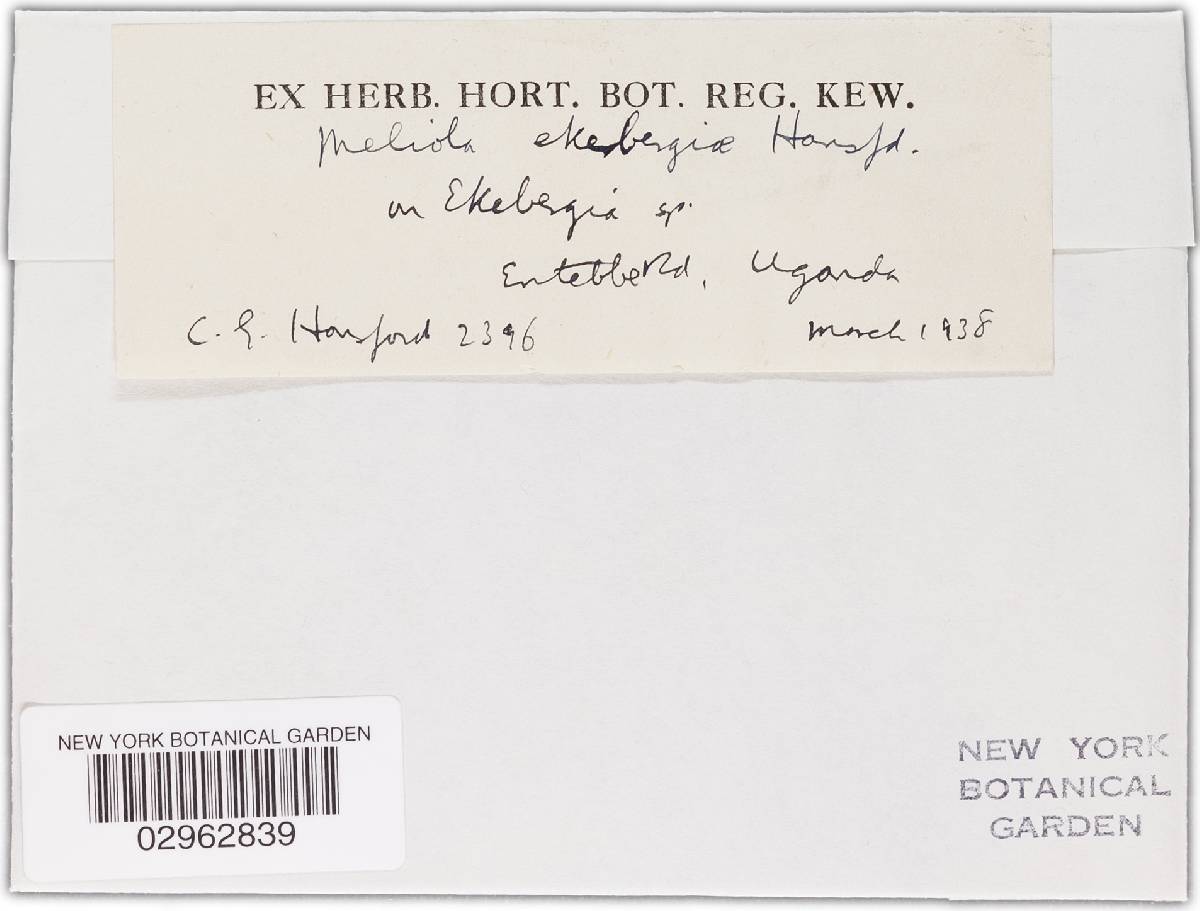 EX HERB. HORT. BOT. REG. KEW.
Meliola ekebergiæ Hansfd.
on Ekebergia sp.
Entebbe Rd, Uganda
C. G. Hansford 2396 March 1938
NEW YORK BOTANICAL GARDEN
02962839
NEW YORK
BOTANICAL
GARDEN